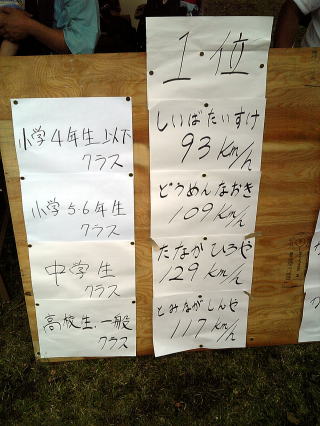 1位
小学4年生以下
クラス
しいばたいすけ
93 km/h
小学5.6年生
クラス
どうめんなおき
109 km/h
中学生
クラス
たなかひろや
129 km/h
高校生.一般
クラス
とみながしんや
117 km/h